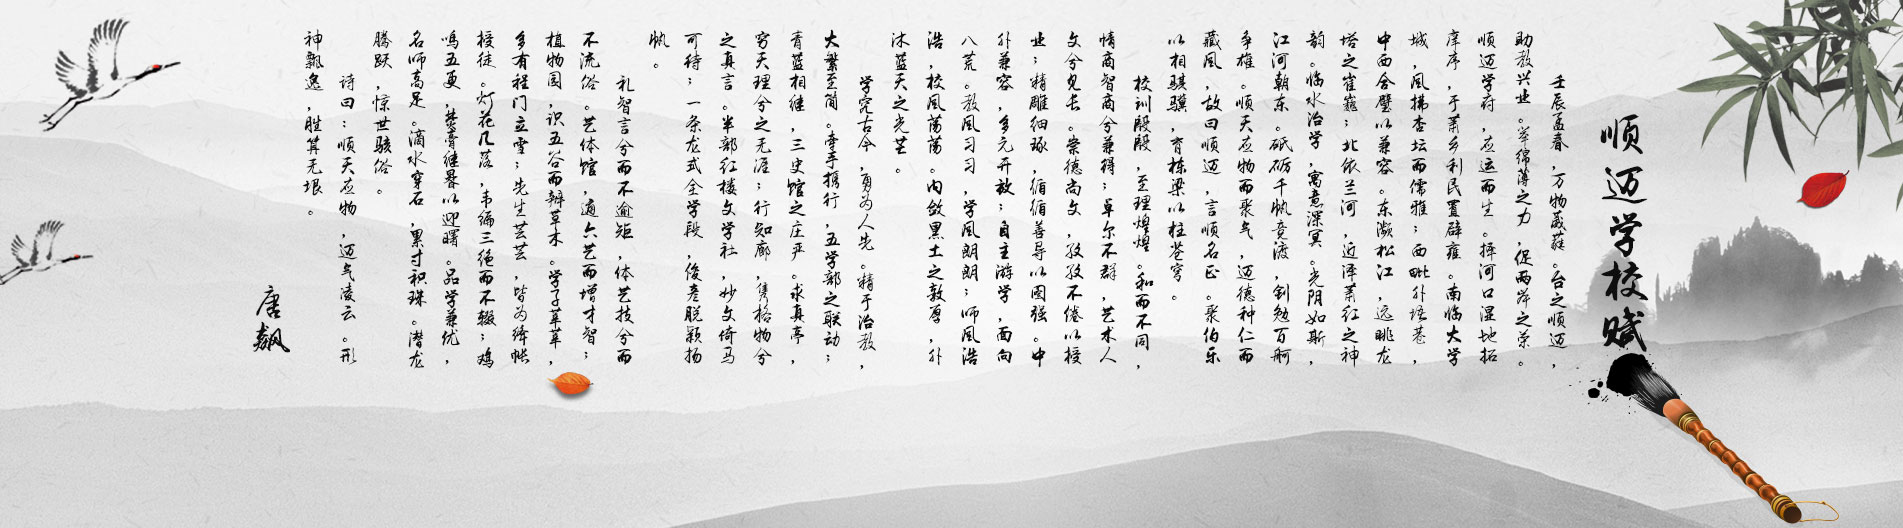 顺迈学校赋
壬辰孟春，万物葳蕤。台之顺迈，
助教兴业。举绵薄之力，促两岸之荣。
顺迈学府，应运而生。择河口湿地拓
庠序，于萧乡利民置辟雍。南临大学
城，风拂杏坛而儒雅；西毗外语巷，
中西合璧以兼容。东濒松江，远眺龙
塔之崔巍；北依兰河，近泽萧红之神
韵。临水治学，寓意深冥。光阴如斯，
江河朝东。砥砺千帆竞渡，剑勉百舸
争雄。顺天应物而聚气，迈德种仁而
藏风，故曰顺迈，言顺名正。聚伯乐
以相骐骥，育栋梁以柱苍穹。
校训殷殷，至理煌煌。和而不同，
情商智商兮兼得；卓尔不群，艺术人
文兮见长。崇德尚文，孜孜不倦以授
业；精雕细琢，循循善导以图强。中
外兼容，多元开放；自主游学，面向
八荒。教风习习，学风朗朗；师风浩
浩，校风荡荡。内敛黑土之敦厚，外
沐蓝天之光芒。
学究古今，勇为人先。精于治教，
大繁至简。牵手携行，五学部之联动；
青蓝相继，三史馆之庄严。求真亭，
穷天理兮之无涯；行知廊，隽格物兮
之真言。半部红楼文学社，妙文倚马
可待；一条龙式全学段，俊彦脱颖扬
帆。
礼智言兮而不逾矩，体艺技兮而
不流俗。艺体馆，通六艺而增才智；
植物园，识五谷而辨草木。学子莘莘，
多有程门立雪；先生芸芸，皆为绛帐
授徒。灯花几落，韦编三绝而不辍；鸡
鸣五更，焚膏继晷以迎曙。品学兼优，
名师高足。滴水穿石，累寸积珠。潜龙
腾跃，惊世骇俗。
诗曰：顺天应物，迈气凌云。形
神飘逸，胜算无垠。
唐飙